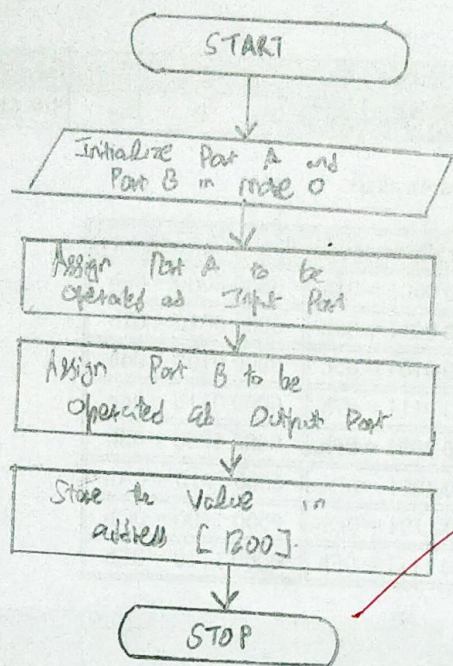 START
Initialize Port A and
Port B in mode 0
Assign Port A to be
operated as Input Port
Assign Port B to be
operated as Output Port
Store the Value in
address [1200].
STOP